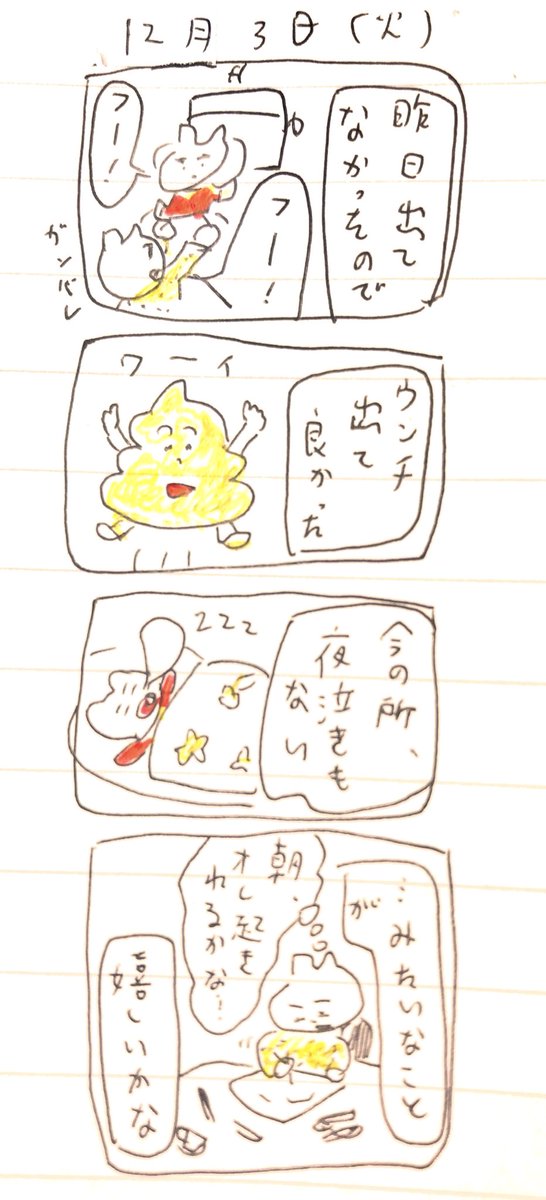 12月3日(火)
昨日出て
なかったので
フー!
フー!
ガンバレ
ウンチ
出て
良かった
ワーイ
今の所、
夜泣きも
ない
zzz
…みたいなこと
が
朝、
オレ起き
れるかな!
嬉しいかな